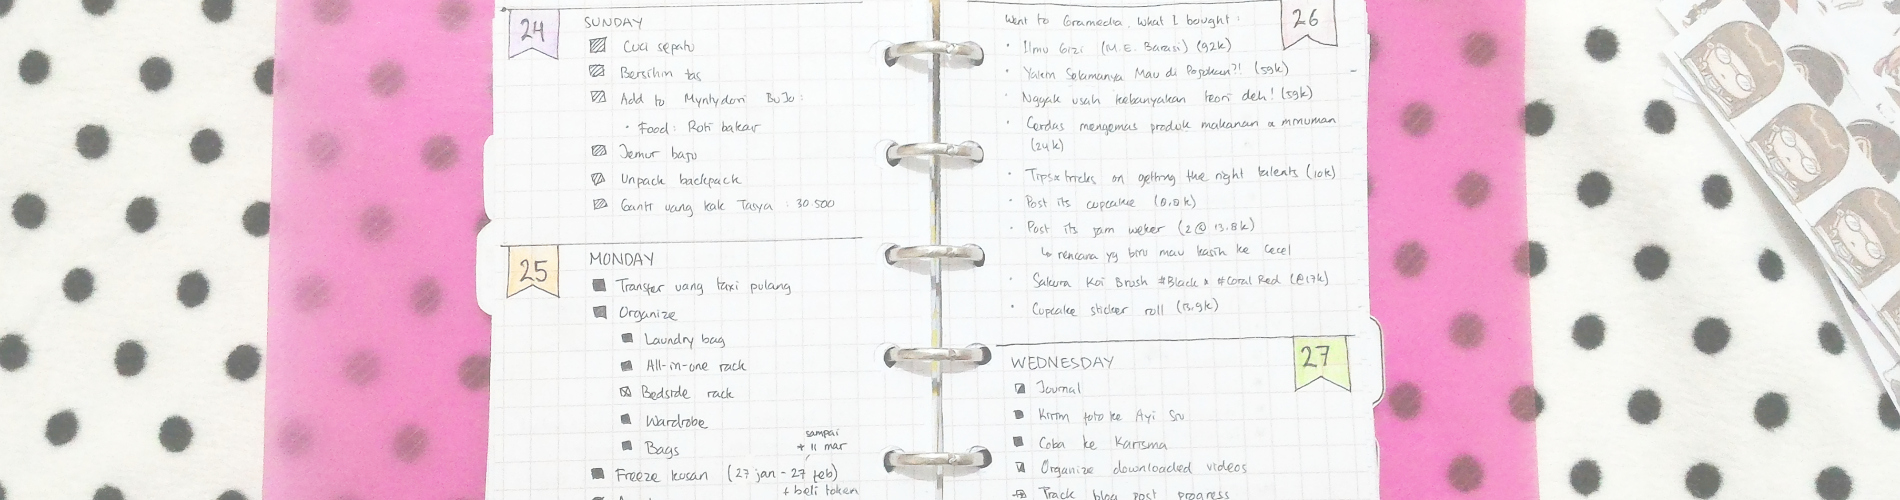 24
SUNDAY
Cuci sepatu
Bersihin tas
Add to Myntydori BuJo :
• Food : Roti bakar
Jemur baju
Unpack backpack
Ganti uang kak Tasya : 30 500
25
MONDAY
Transfer uang taxi pulang
Organize
Laundry bag
All-in-one rack
Bedside rack
Wardrobe
Bags
sampai
+ 11 mar
Freeze kosan (27 jan - 27 feb)
+ beli token
26
Went to Gramedia. What I bought :
• Ilmu Gizi (M.E. Barasi) (92k)
• Yakin Selamanya Mau di Pojokan?! (59k)
• Nggak usah kebanyakan teori deh! (59k)
• Cerdas mengemas produk makanan & minuman
(24k)
• Tips & tricks on getting the right talents (10k)
• Post its cupcake (8.8k)
• Post its jam weker (2 @ 13.8k)
↳ rencana yg biru mau kasih ke Cecel
• Sakura Koi Brush #Black & #Coral Red (@17k)
• Cupcake sticker roll (13.9k)
27
WEDNESDAY
Journal
Kirim foto ke Ayi Su
Coba ke Karisma
Organize downloaded videos
Track blog post progress